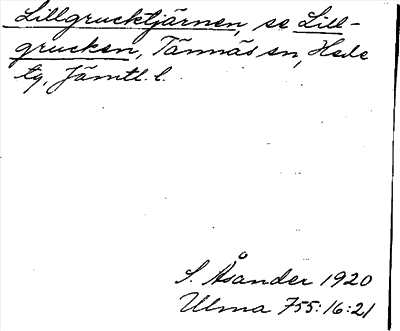 Lillgrucktjärnen, se Lill-
grucken, Tännäs sn, Hede
tg, Jämtl. l.
S. Åsander 1920
Ulma 755:16:21